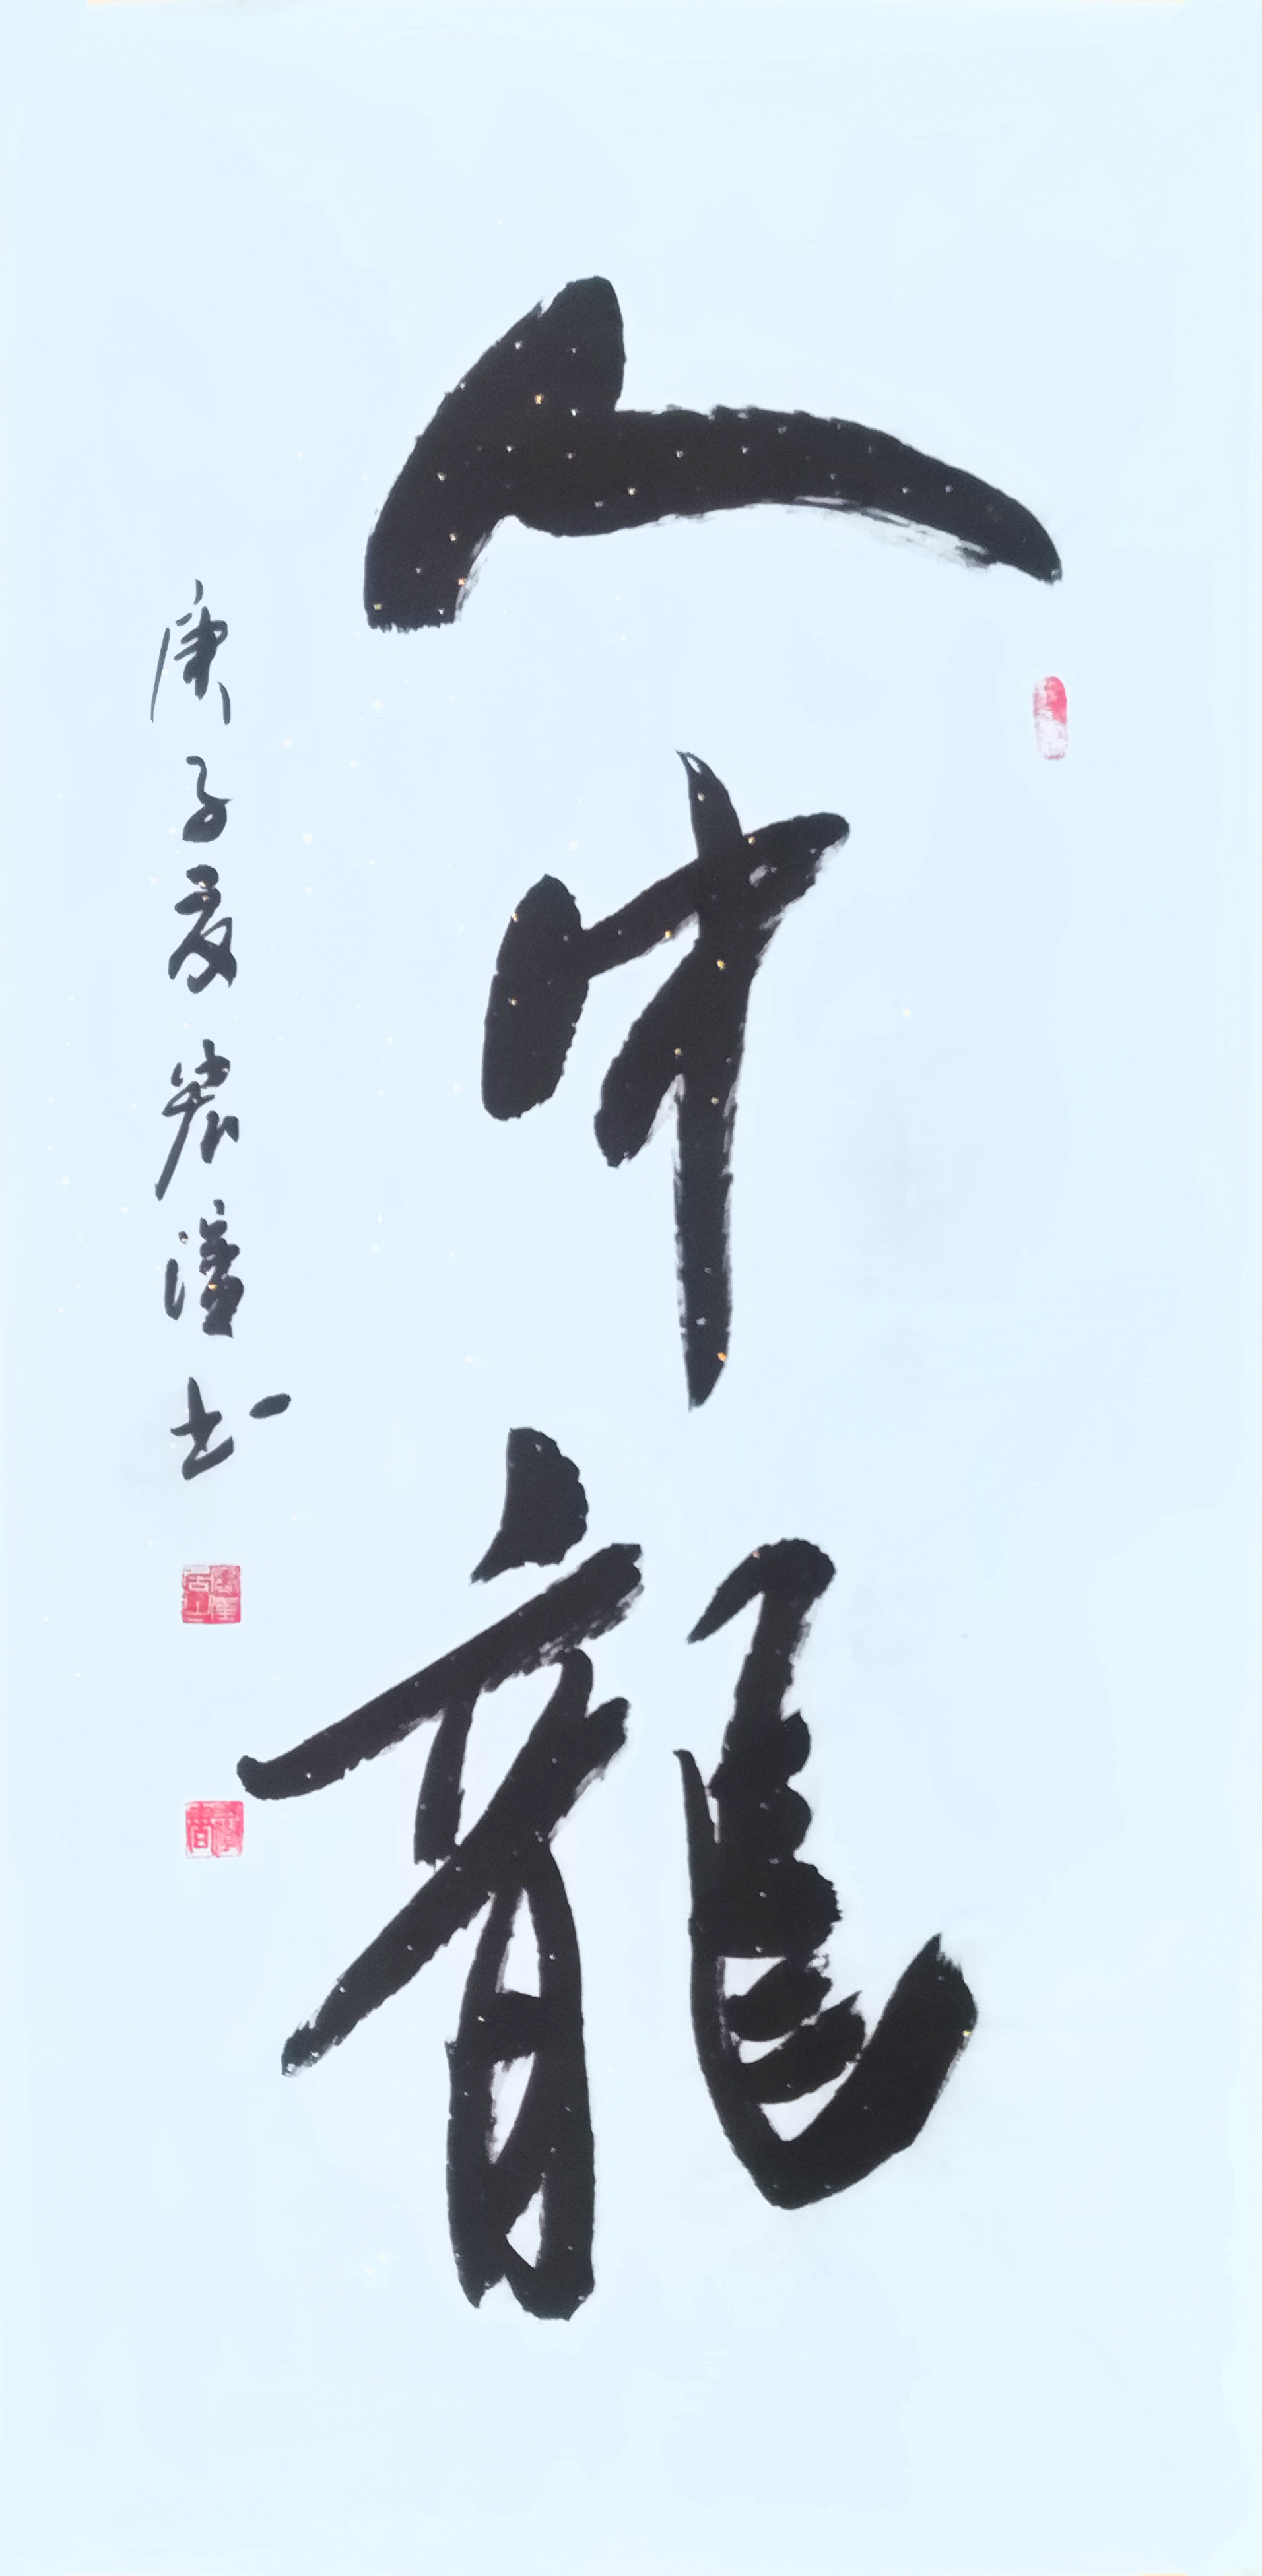 人中龍
庚子夏 書